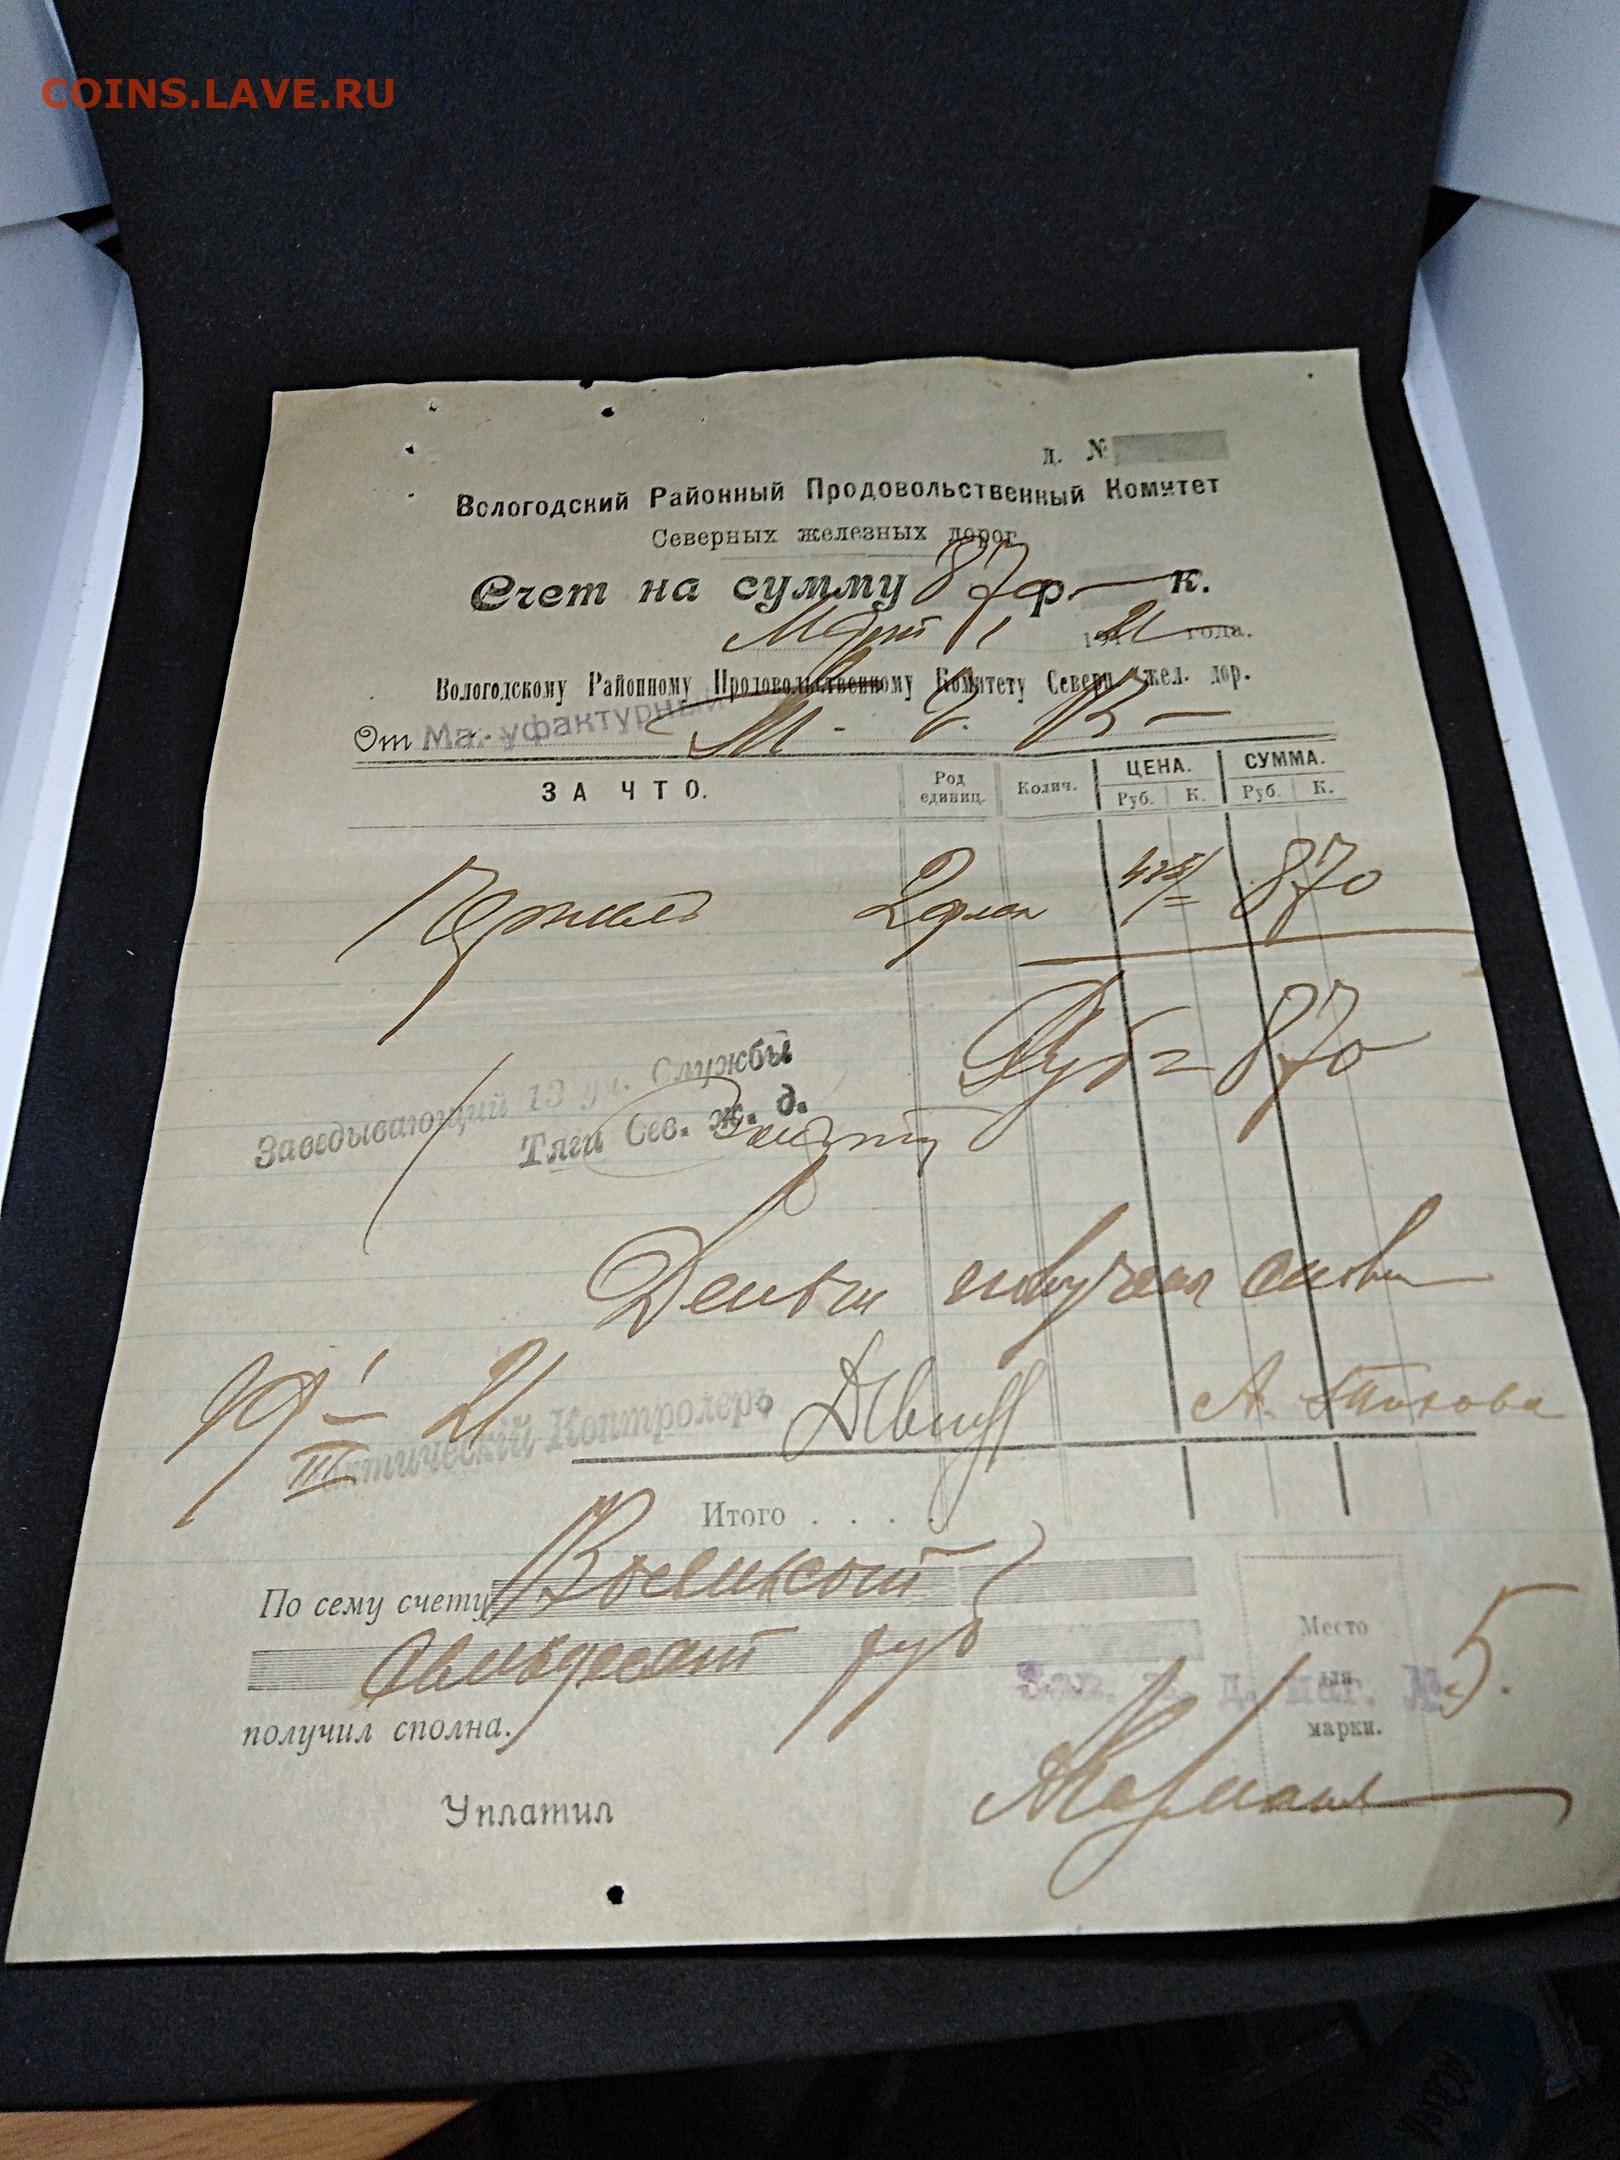 COINS.LAVE.RU
д. №
Вологодский Районный Продовольственный Комитет
Северных железных дорог
Счет на сумму 870 р. — к.
Март 21 года.
Вологодскому Районному Продовольственному Комитету Северн. жел. дор.
От Мануфактурный
ЗА ЧТО. Род единиц. Колич. ЦЕНА. СУММА.
Руб. К. Руб. К.
Чернил 2 435/= 870
Руб= 870
Заведывающий 13 уч. Службы
Тяги Сев. ж. д.
Деньги получил
19 III 21 Контролер
Итого . . . .
По сему счету Восемьсот
семьдесят руб
получил сполна.
Место
для
марки.
Зав. маг. № 5.
Уплатил